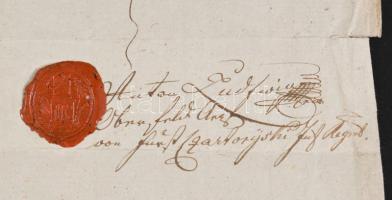 Anton Ludwig
Oberfeld Arzt
von Fürst Czartoryski Inf. Regmt.